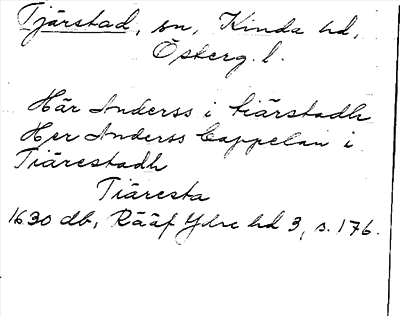 Tjärstad, sn, Kinda hd,
Österg. l.
Här Anderss i tiärstadh
Her Anderss Cappelan i
Tiärestadh
Tiäresta
1630 db, Rääf Ydre hd 3, s. 176.